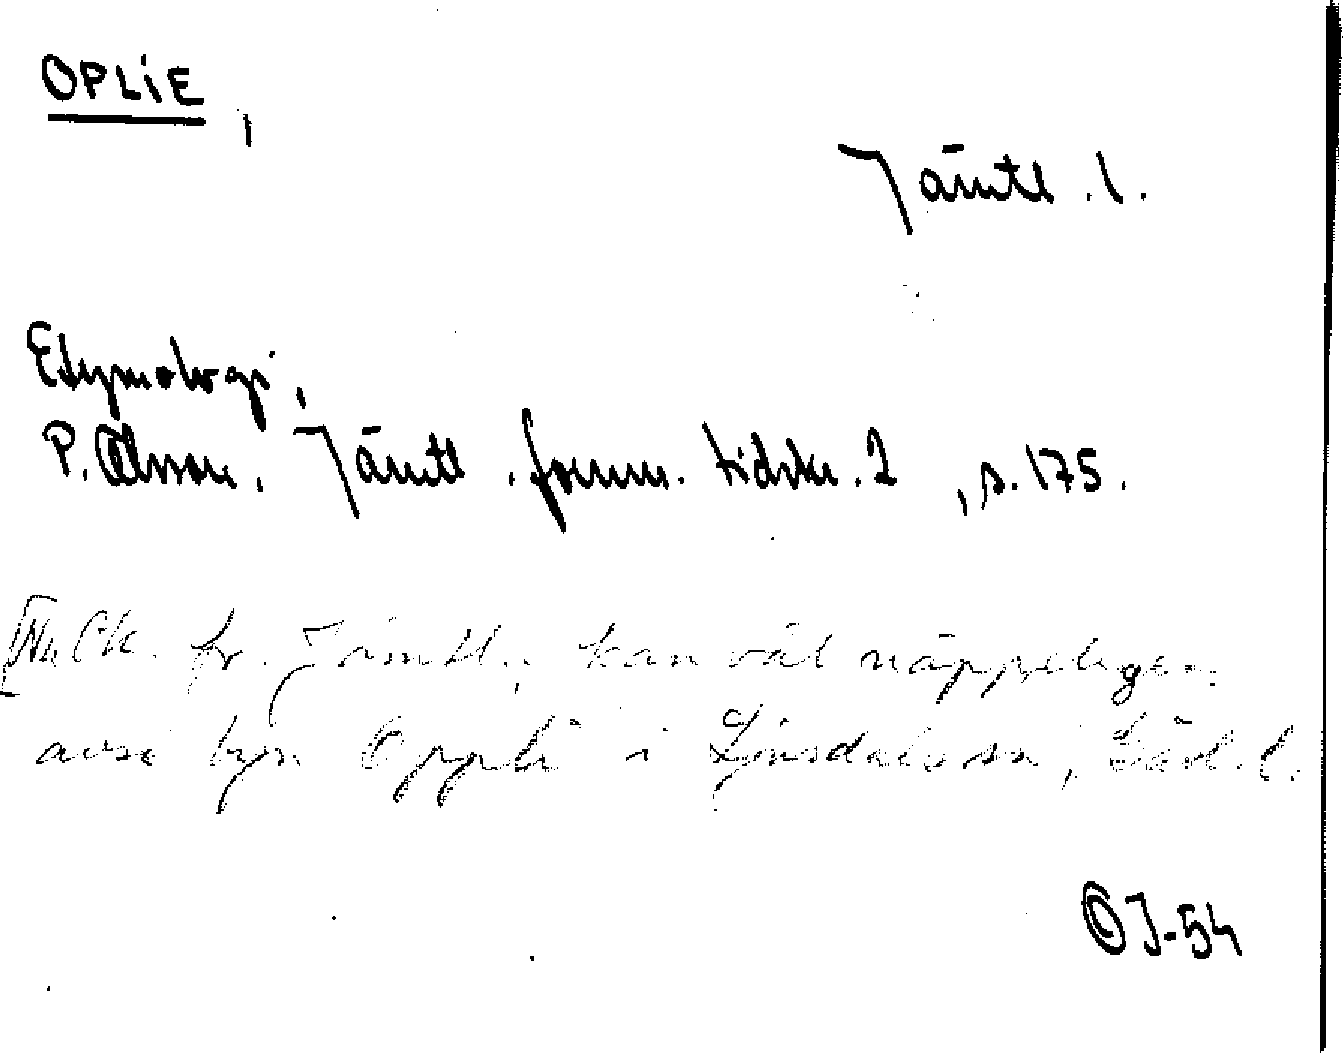 OPLiE,
Jämtl. l.
Etymologi,
P. Olsson. Jämtl. fornm. tidskr. 2, s. 175.
fr. Jämtl., kan väl näppeligen
avse byn Opplie i Ljusdals sn, Gävl. l.
OJ-54